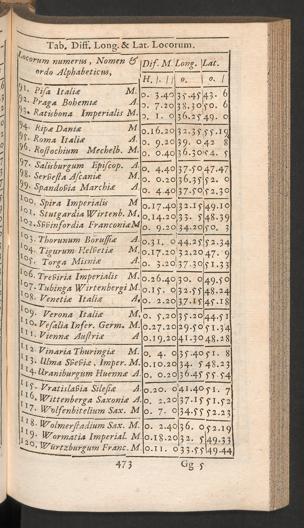 Tab. Diff. Long. & Lat. Locorum.
Locorum numerus, Nomen & ordo Alphabeticus,
Dif. M. Long. Lat.
H. / // o. / o. /
91. Pisa Italiæ M. 0. 3.40 35.45 43. 6
92. Praga Bohemiæ A. 0. 7.20 38.30 50. 6
93. Ratisbona Imperialis M. 0. 1. 0 36.25 49.
94. Ripæ Daniæ M 0.16.20 32.35 55.19
95. Roma Italiæ A. 0. 9.20 39. 0 42 8
96. Rostochium Mechelb. M. 0. 0.40 36.30 54. 5
97. Salisburgum Episcop. A. 0. 4.40 37.50 47.47
98. Servesta Ascaniæ M. 0. 0.20 36.35 52. 0
99. Spandovia Marchiæ A. 0. 4.40 37.50 52.30
100. Spira Imperialis M 0.17.40 32.15 49.10
101. Stutgardia Wirtenb. M. 0.14.20 33. 5 48.39
102. Svvinfordia Franconiæ M 0. 9.20 34.20 50. 3
103. Thorunum Borussiæ A 0.31. 0 44.25 52.34
104. Tigurum Helvetiæ M 0.17.20 32.20 47. 9
105. Torga Misniæ A. 0. 3.20 37.30 51.33
106. Treviria Imperialis M 0.26.40 30. 0 49.50
107. Tubinga Wirtenbergi M 0.15. 0 32.55 48.24
108. Venetiæ Italiæ A. 0. 2.20 37.15 45.18
109. Verona Italiæ M. 0. 5.20 35.20 44.51
110. Vesalia Infer. Germ. M. 0.27.20 29.50 51.34
111. Vienna Austriæ A 0.19.20 41.30 48.28
112. Vinaria Thuringiæ M 0. 4. 0 35.40 51. 8
113. Ulma Svveviæ. Imper. M 0.10.20 34. 5 48.23
114. Uraniburgum Huennæ A 0. 0.20 36.45 55.54
115. Vratislavia Silesiæ A 0.20. 0 41.40 51. 7
116. Wittenberga Saxoniæ A. 0. 2.20 37.15 51.52
117. Wolfenbitelium Sax. M 0. 7. 0 34.55 52.23
118. Wolmerstadium Sax. M. 0. 2.40 36. 0 52.19
119. Wormatia Imperial. M 0.18.20 32. 5 49.33
120. Wurtzburgum Franc. M 0.11. 0 33.55 49.44
473 Gg 5